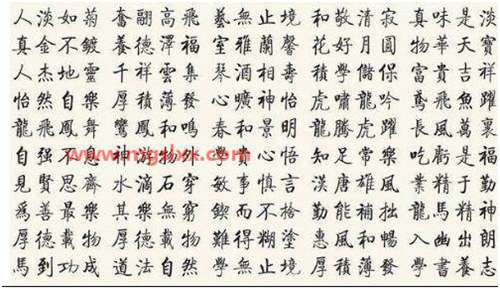 人淡如菊 奮翮高飛 藝無止境 和敬清寂 真味是淡
真金不鍍 養德澤福 室雅蘭馨 花好月圓 物華天寶
人杰地靈 千祥雲集 琴酒相壽 積學儲保 富貴吉祥
怡然自樂 厚積薄發 心曠神怡 虎嘯龍吟 鳶飛魚躍
龍飛鳳舞 鸞鳳和鳴 春和景明 龍騰虎躍 長風萬裏
自強不息 神游物外 心悟 知足常樂 吃虧是福
見賢思齊 水滴石穿 敏事慎言 漢唐雄風 業精于勤
爲善最樂 其樂無窮 鍥而不捨 勤能補拙 龍馬精神
厚德載物 厚德載物 難得糊塗 惠風和暢 入幽出朗
馬到功成 道法自然 學無止境 厚積薄發 學書養志